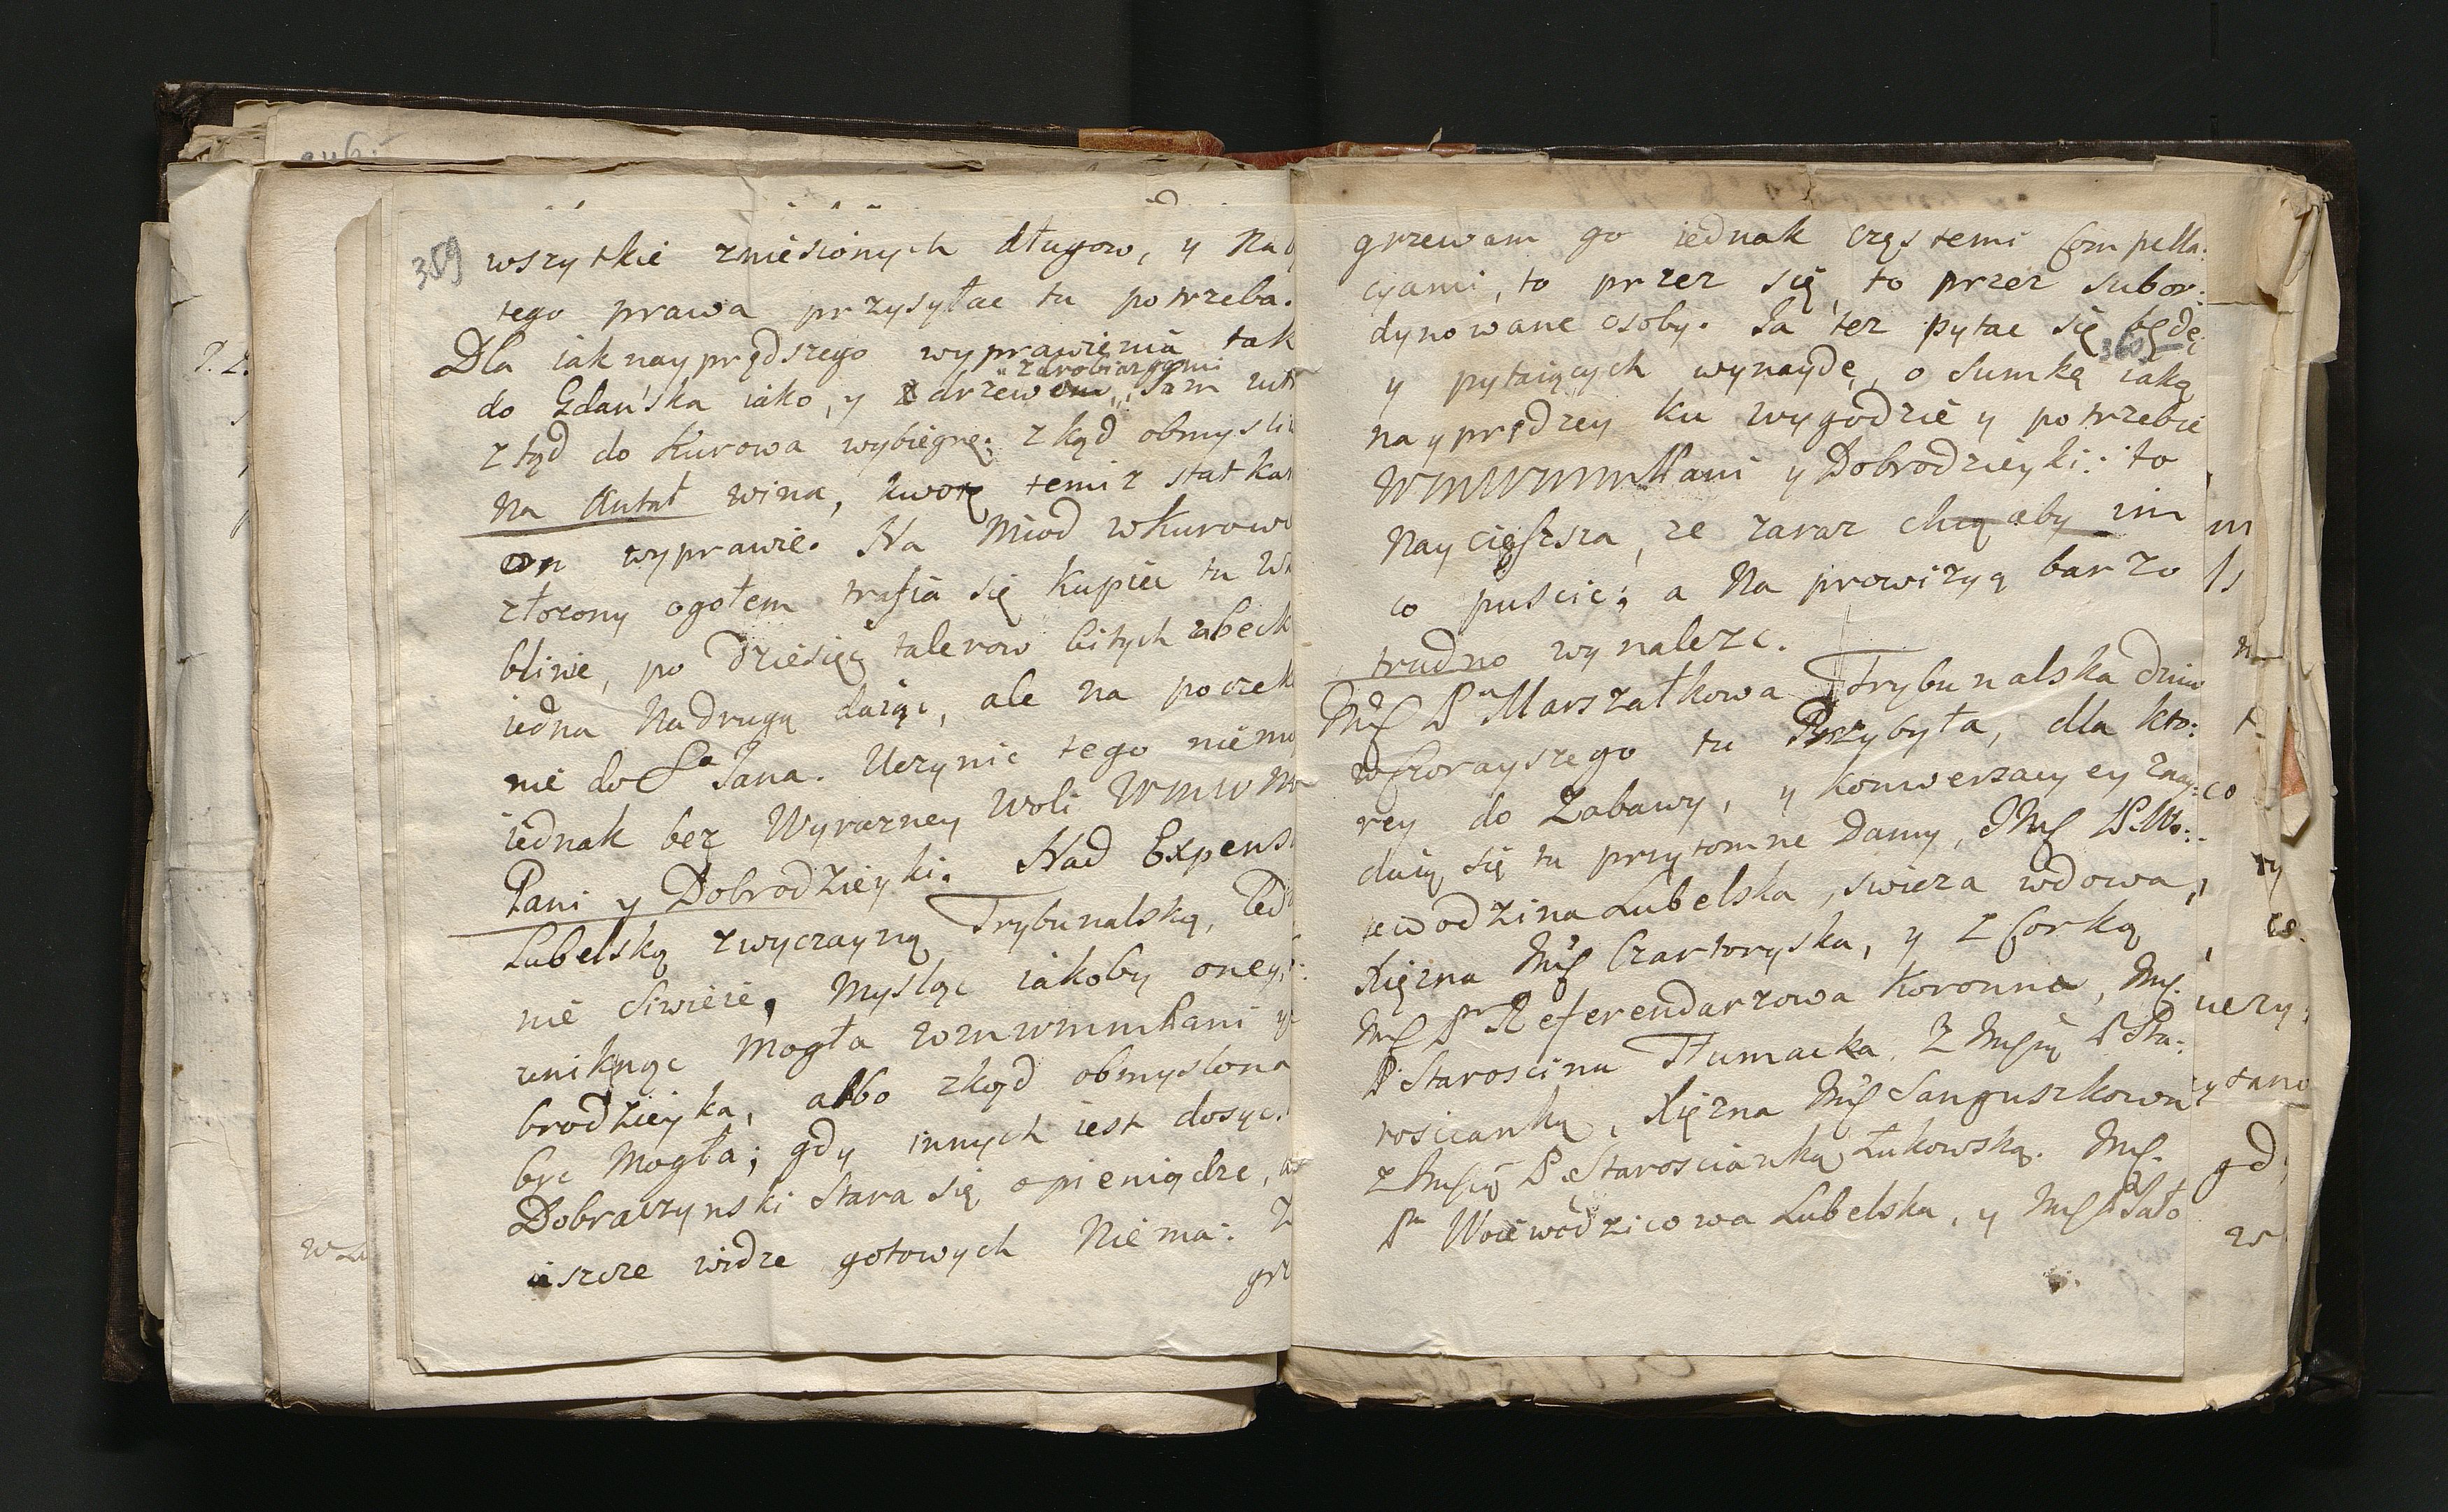 359
wszytkie zniesionych długow, y na
tego prawa przysyłac tu potrzeba.
Dla iak nayprędszego wyprawienia tak
zarobiaiącymi
do Gdańska iako, y z drzewem, sam
z tąd do Kurowa wybiegnę: zkąd obmysli
na Antał wina, kwotę temiz statka
on wyprawie. Na Miod w Kurowi
złozony ogołem trafia się Kupiec tu w
blinie, po dziesięc talerow bitych za beck
iedna na drugą daiąc, ale na poczek
nie do S. Jana. Uczynic tego niemo
iednak bez Wyrazney woli WMWM
Pani y Dobrodzieyki. Nad Expens
Lubelską zwyczayną Trybunalską,
nie Siwieie, Mysląc iakoby oney
uniknąc mogła WMWMMPani y
brodzieyka, albo zkąd obmyslona
byc mogła; gdy innych iest dosyc.
Dobraczynski stara się o pieniądze,
ieszcze widze gotowych Niema: Z
grz
grzewam go iednak częstemi Compella:
cyami, to przez się, to przez subor:
dynowane osoby. Ja tez pytac się będę,
360
y pytaiących wynaydę, o Sumkę iaką
nayprędzey ku wygodzie y potrzebie
WMWMMPani y Dobrodzieyki: to
naycięższa, ze zaraz chcą aby im
co puscic; a na prowizyą barzo
trudno wynalezc.
JmC Pa Marszałkowa Trybunalska dnia
wczorayszego tu Przybyła, dla kto:
rey do Zabawy, y konwersacyey znay:
duią się tu przytomne Damy, JMC P. Wo:
iewodzina Lubelska, swieza wdowa,
Xięzna JmC Czartoryska, y z Corką
JmC Pa Referendarzowa Koronna, JmC
P. Starościna Tłumacka. Z JmCią P. Sta:
roscianką, Xięzna JmC Sanguszkowa
z JmCią P. Staroscianką Łukowską. JmC.
Pa Woiewodzicowa Lubelska, y JmC P. Sało